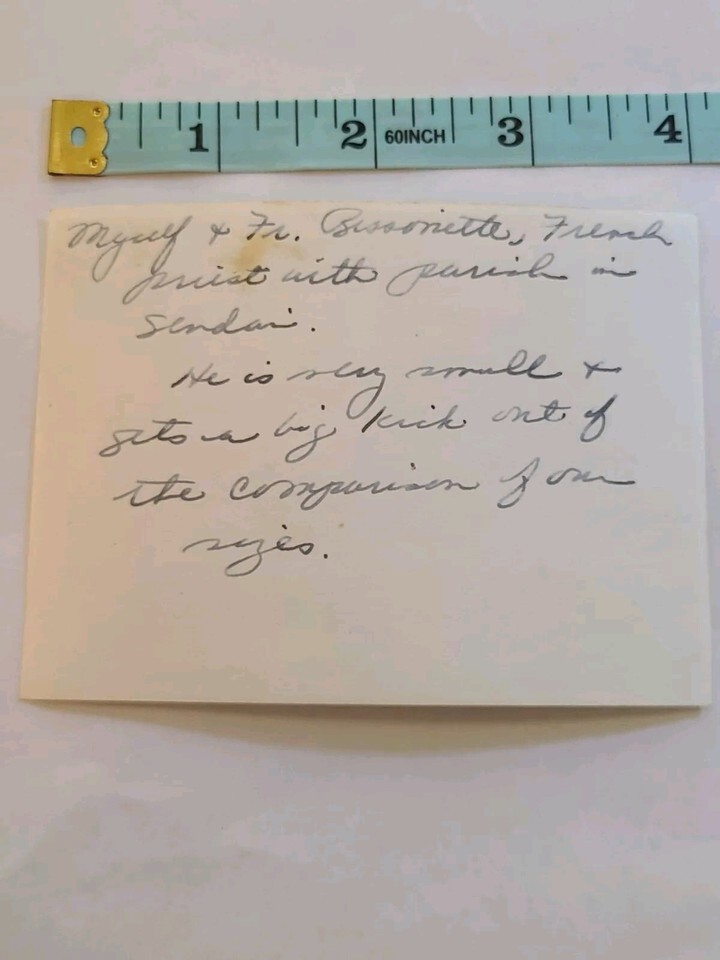 1 2 60INCH 3 4
Myself & Fr. Bissonette, French
priest with parish in
Sendai.
He is very small &
gets a big kick out of
the comparison of our
sizes.